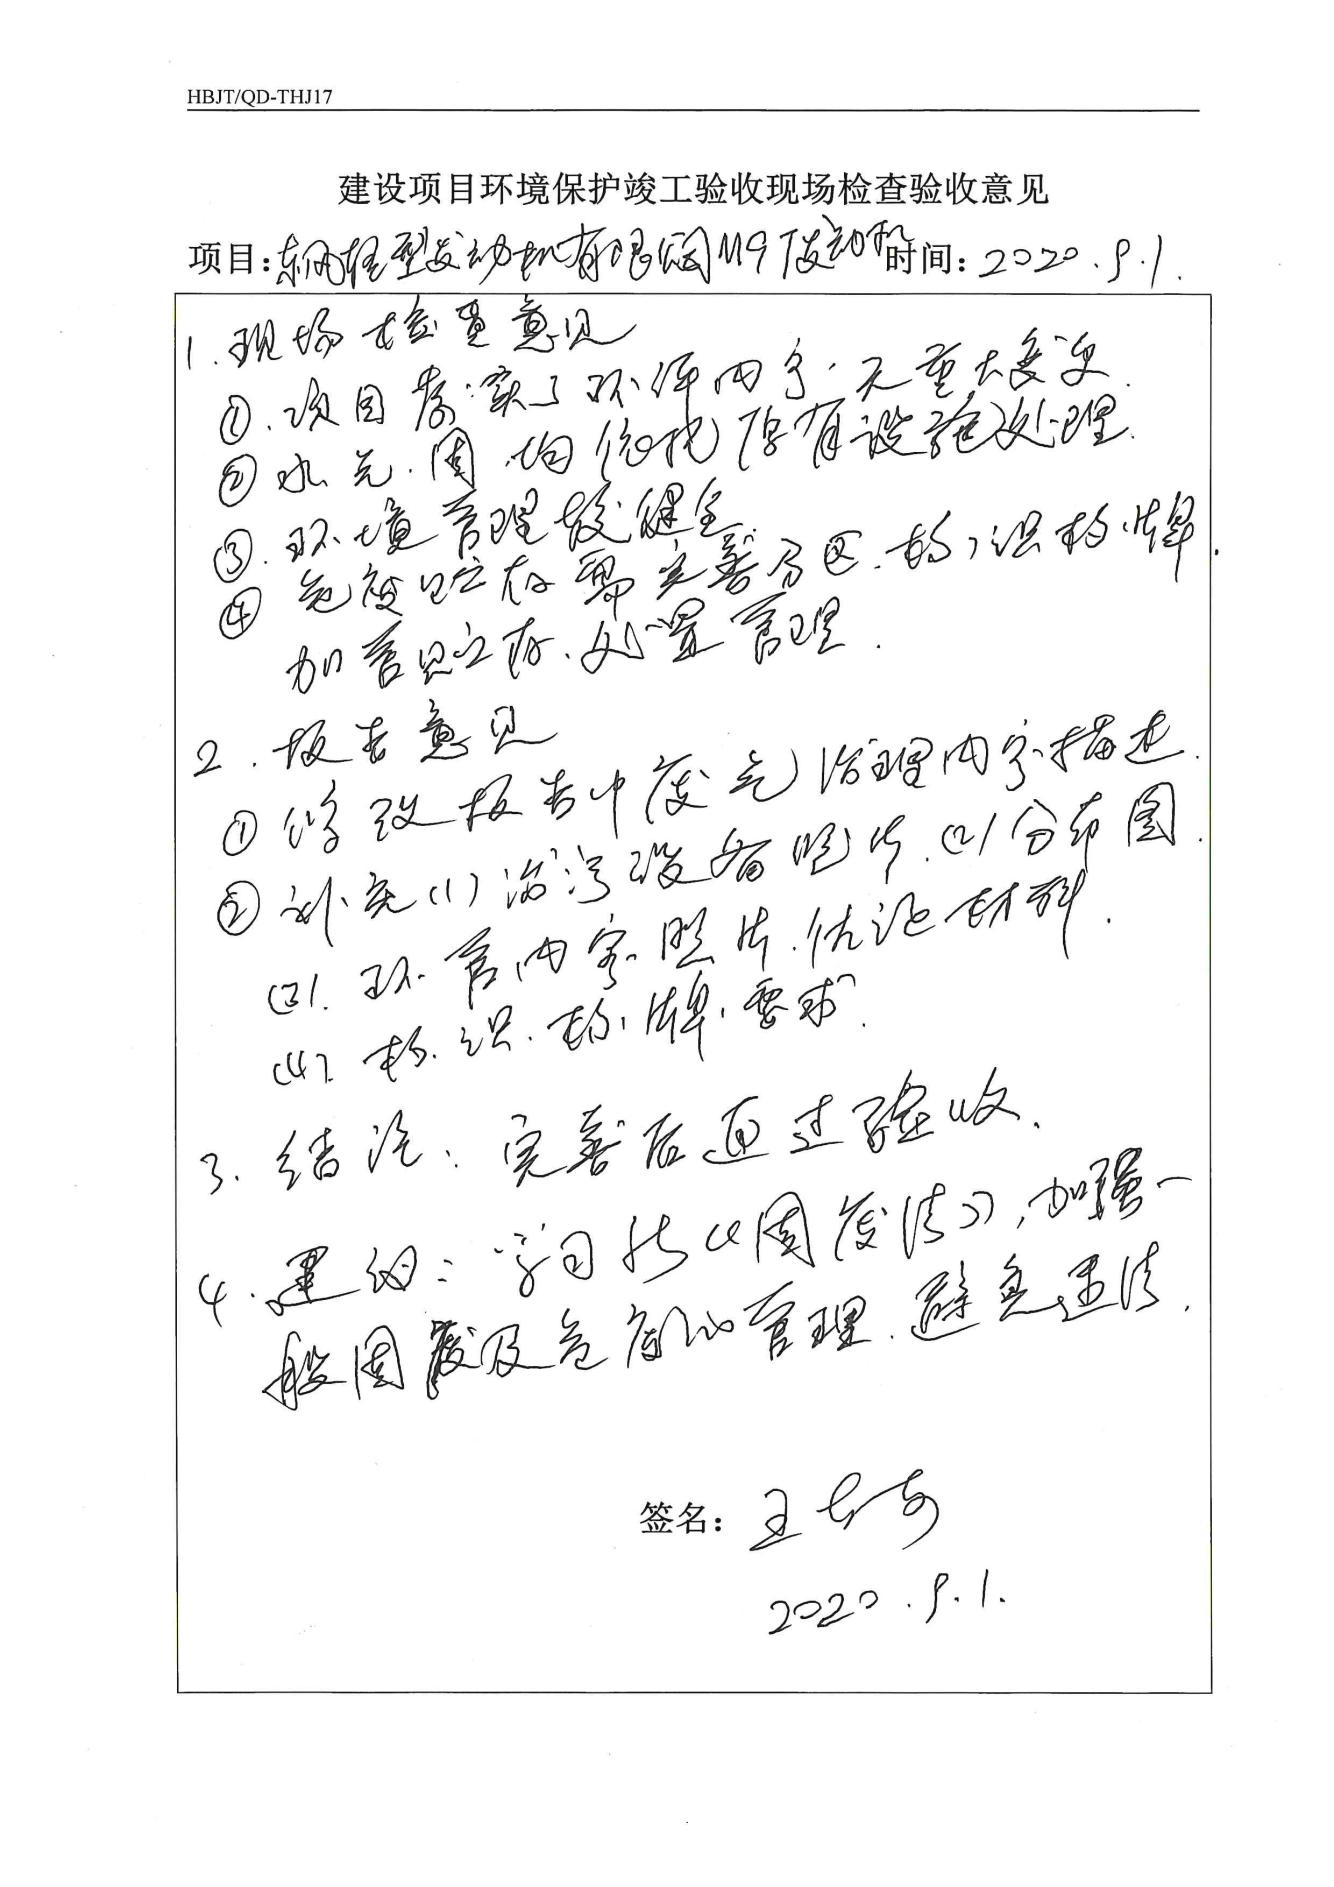 HBJT/QD-THJ17
建设项目环境保护竣工验收现场检查验收意见
项目：东风轻型发动机有限公司M9T发动机 时间：2020.9.1.
1.现场检查意见
①.项目落实了环评内容.无重大变更.
②水.气.固.均依托原有设施处理.
③.环境管理较健全
④危废贮存需完善分区.标识标牌.
加管贮存.处置管理.
2.报告意见
①修改报告中废气治理内容描述.
②补充(1)治污设备照片.(2)分布图.
(3).环管内容照片.佐证材料.
(4)标.识.标.牌.要求.
3.结论：完善后通过验收.
4.建议：学习新《固废法》,加强一
般固废及危废的管理.避免违法.
签名：王
2020.9.1.